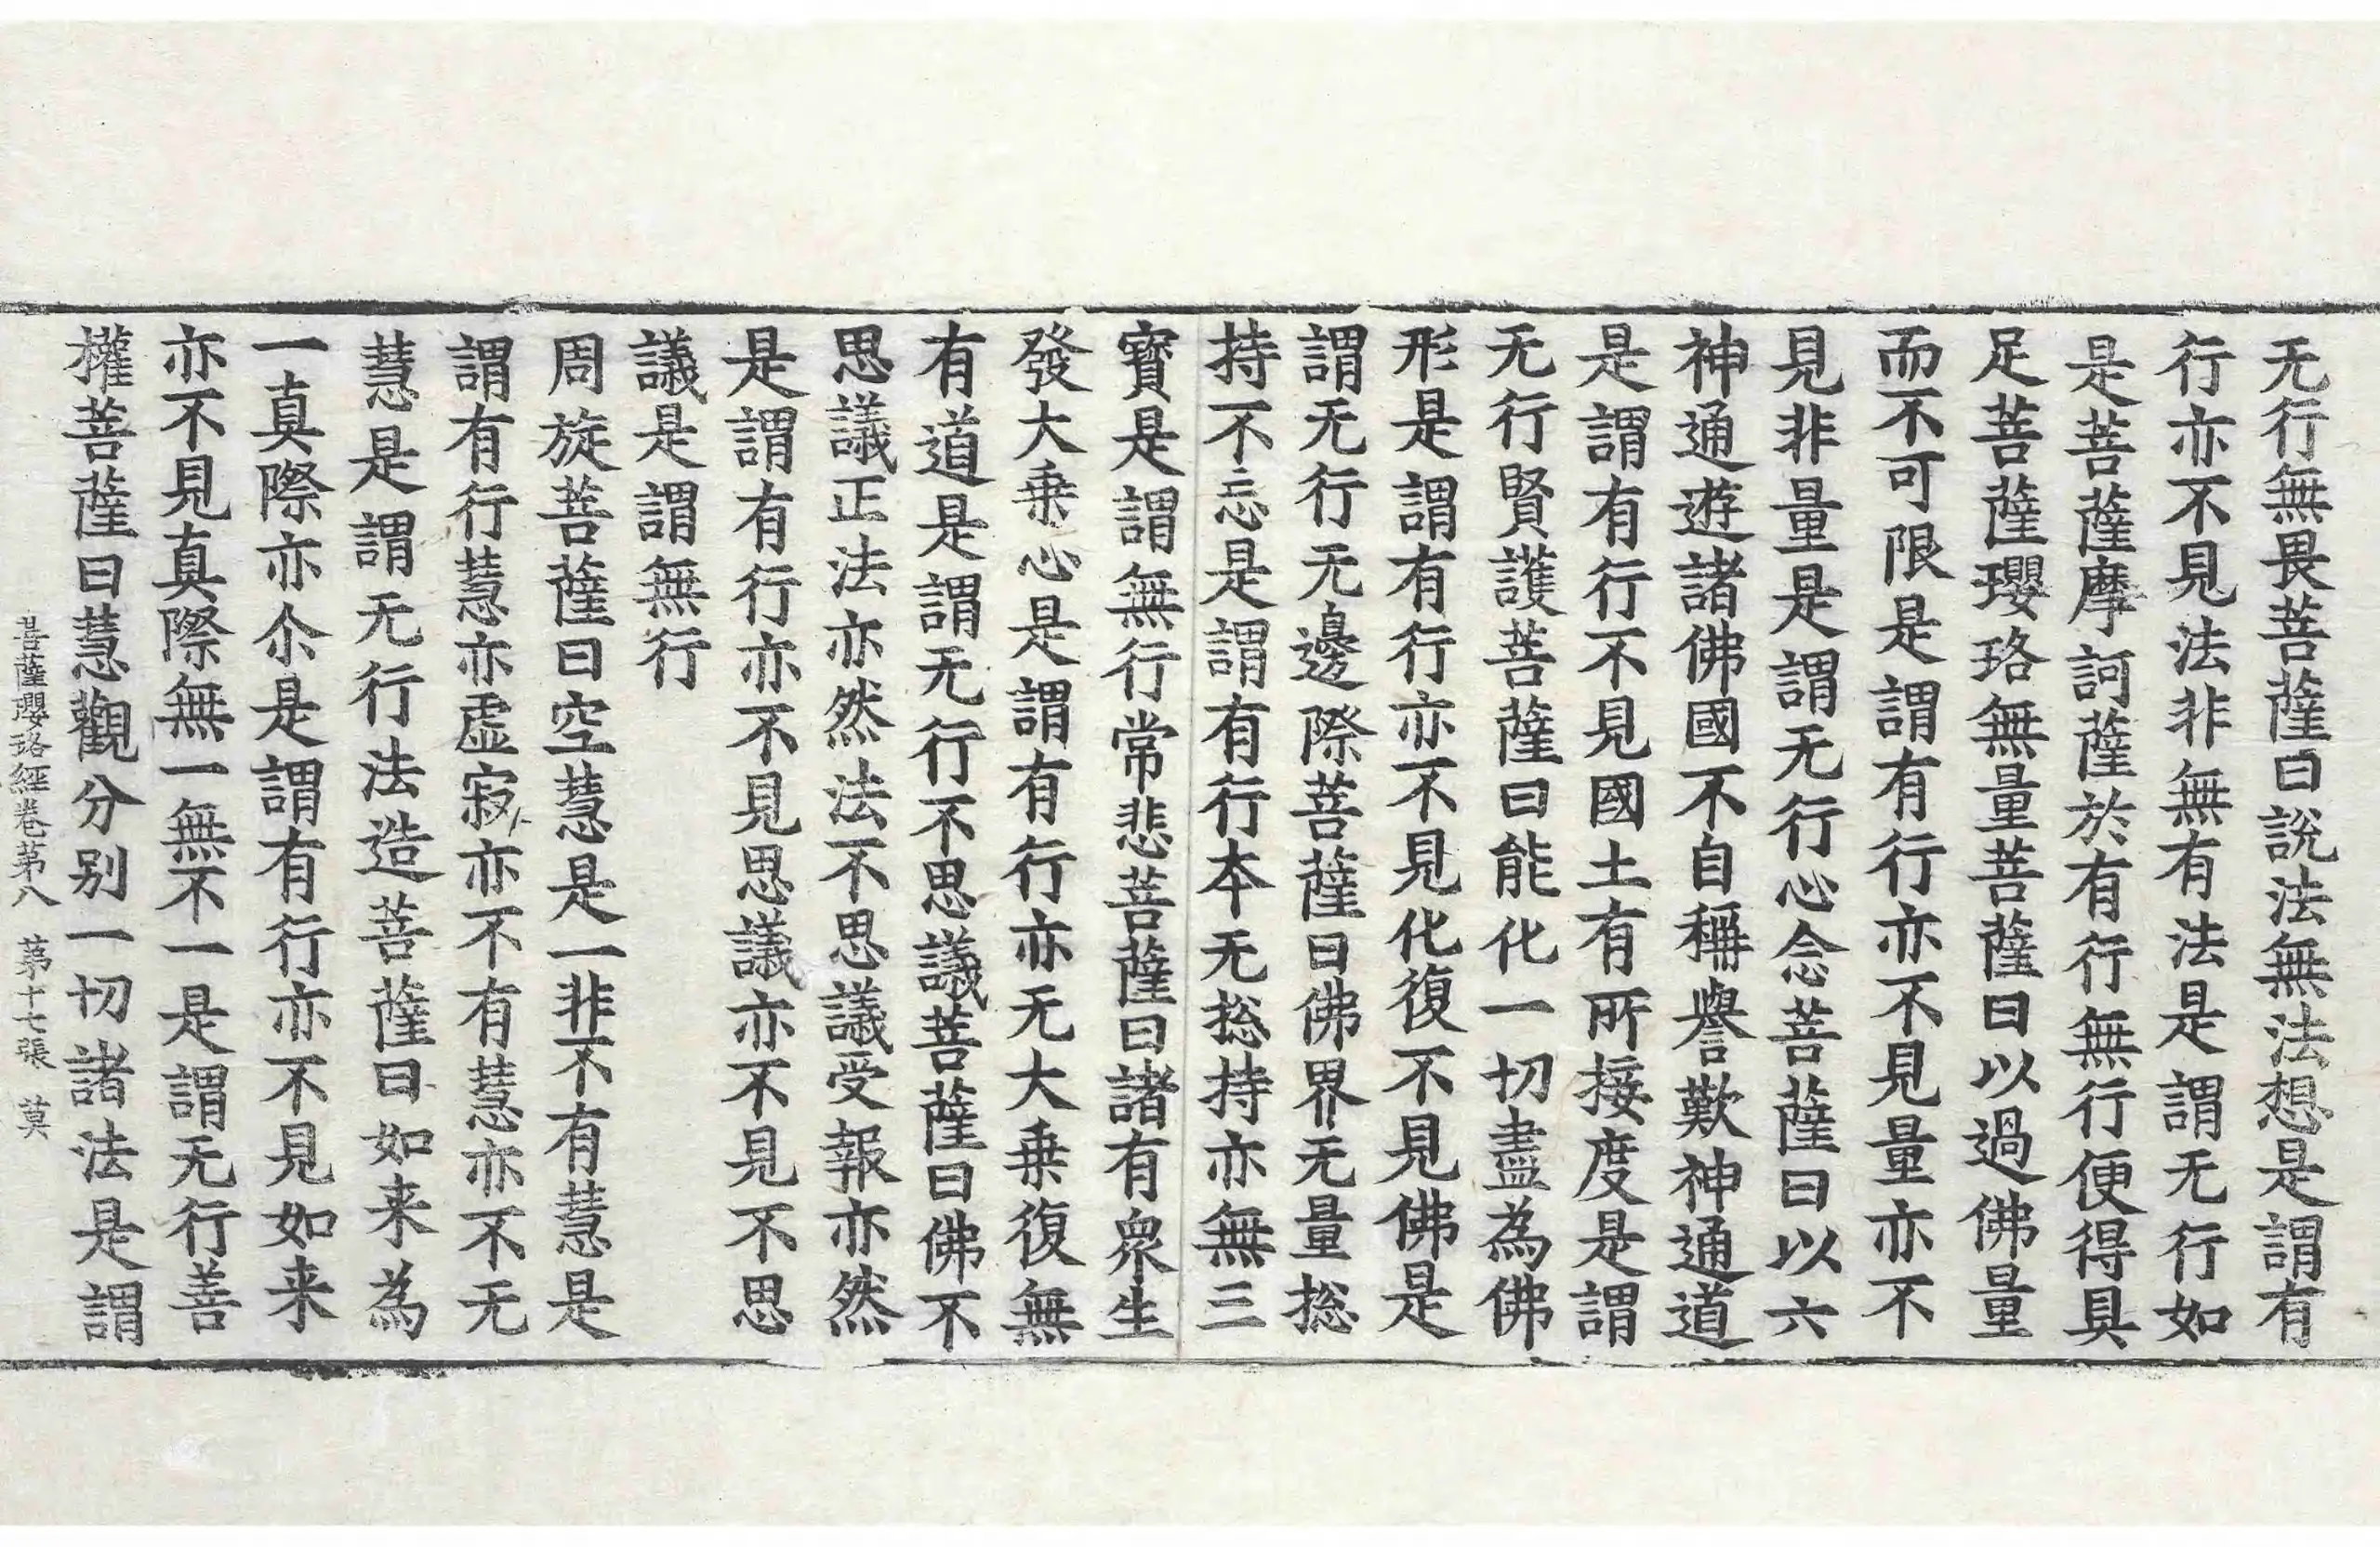 无行無畏菩薩曰說法無法想是謂有
行亦不見法非無有法是謂无行如
是菩薩摩訶薩於有行無行便得具
足菩薩瓔珞無量菩薩曰以過佛量
而不可限是謂有行亦不見量亦不
見非量是謂无行心念菩薩曰以六
神通遊諸佛國不自稱譽歎神通道
是謂有行不見國土有所接度是謂
无行賢護菩薩曰能化一切盡為佛
形是謂有行亦不見化復不見佛是
謂无行无邊際菩薩曰佛界无量揔
持不忘是謂有行本无揔持亦無三
寶是謂無行常悲菩薩曰諸有衆生
發大乗心是謂有行亦无大乗復無
有道是謂无行不思議菩薩曰佛不
思議正法亦然法不思議受報亦然
是謂有行亦不見思議亦不見不思
議是謂無行
周旋菩薩曰空慧是一非不有慧是
謂有行慧亦虛寂亦不有慧亦不无
慧是謂无行法造菩薩曰如来為
一真際亦尒是謂有行亦不見如来
亦不見真際無一無不一是謂无行善
權菩薩曰慧觀分别一切諸法是謂
菩薩瓔珞經卷苐八 苐十七張 莫